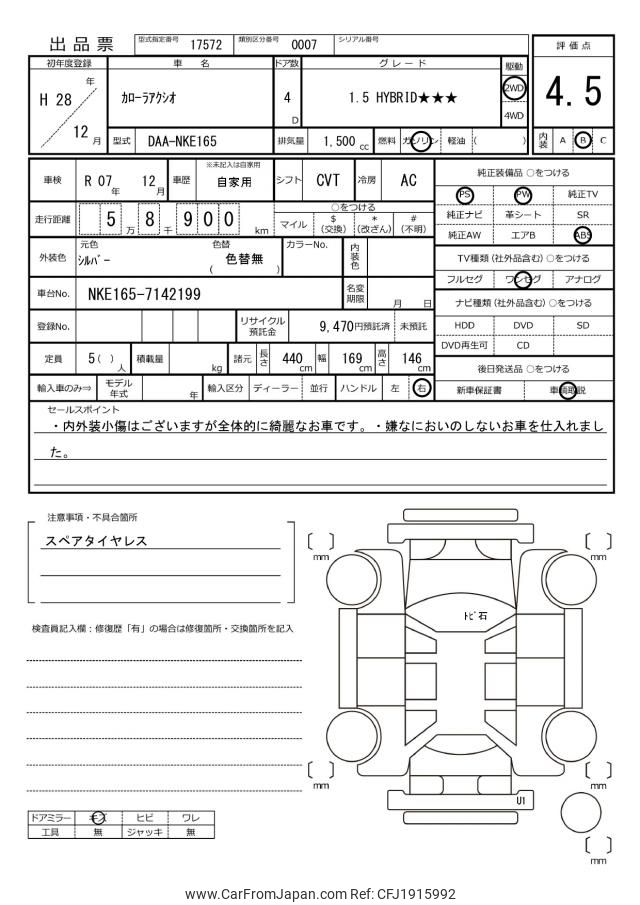 出品票
型式指定番号 17572 類別区分番号 0007 シリアル番号
評価点
4.5
内装 A B C
初年度登録 車名 ドア数 グレード 駆動
H 28 年
12 月
カローラアクシオ
4 D
1.5 HYBRID★★★
2WD
4WD
型式 DAA-NKE165 排気量 1,500 cc 燃料 ガソリン 軽油 ( )
車検 R 07 年 12 月 車歴 ※未記入は自家用 自家用 シフト CVT 冷房 AC
走行距離 5 万 8 千 900 km
○をつける
マイル $ (交換) * (改ざん) # (不明)
外装色 元色 シルバー 色替 ( 色替無 ) カラーNo. 内装色
車台No. NKE165-7142199 名変期限 月 日
登録No. リサイクル預託金 9,470円預託済 未預託
定員 5( ) 人 積載量 kg 諸元 長さ 440 cm 幅 169 cm 高さ 146 cm
輸入車のみ⇒ モデル年式 年 輸入区分 ディーラー 並行 ハンドル 左 右
純正装備品 ○をつける
PS PW 純正TV
純正ナビ 革シート SR
純正AW エアB ABS
TV種類 (社外品含む) ○をつける
フルセグ ワンセグ アナログ
ナビ種類 (社外品含む) ○をつける
HDD DVD SD
DVD再生可 CD
後日発送品 ○をつける
新車保証書 車輌取説
セールスポイント
・内外装小傷はございますが全体的に綺麗なお車です。・嫌なにおいのしないお車を仕入れまし
た。
注意事項・不具合箇所
スペアタイヤレス
検査員記入欄：修復歴「有」の場合は修復箇所・交換箇所を記入
ドアミラー キズ ヒビ ワレ
工具 無 ジャッキ 無
mm
mm
トビ石
mm
mm
U1
mm
www.CarFromJapan.com Ref: CFJ1915992